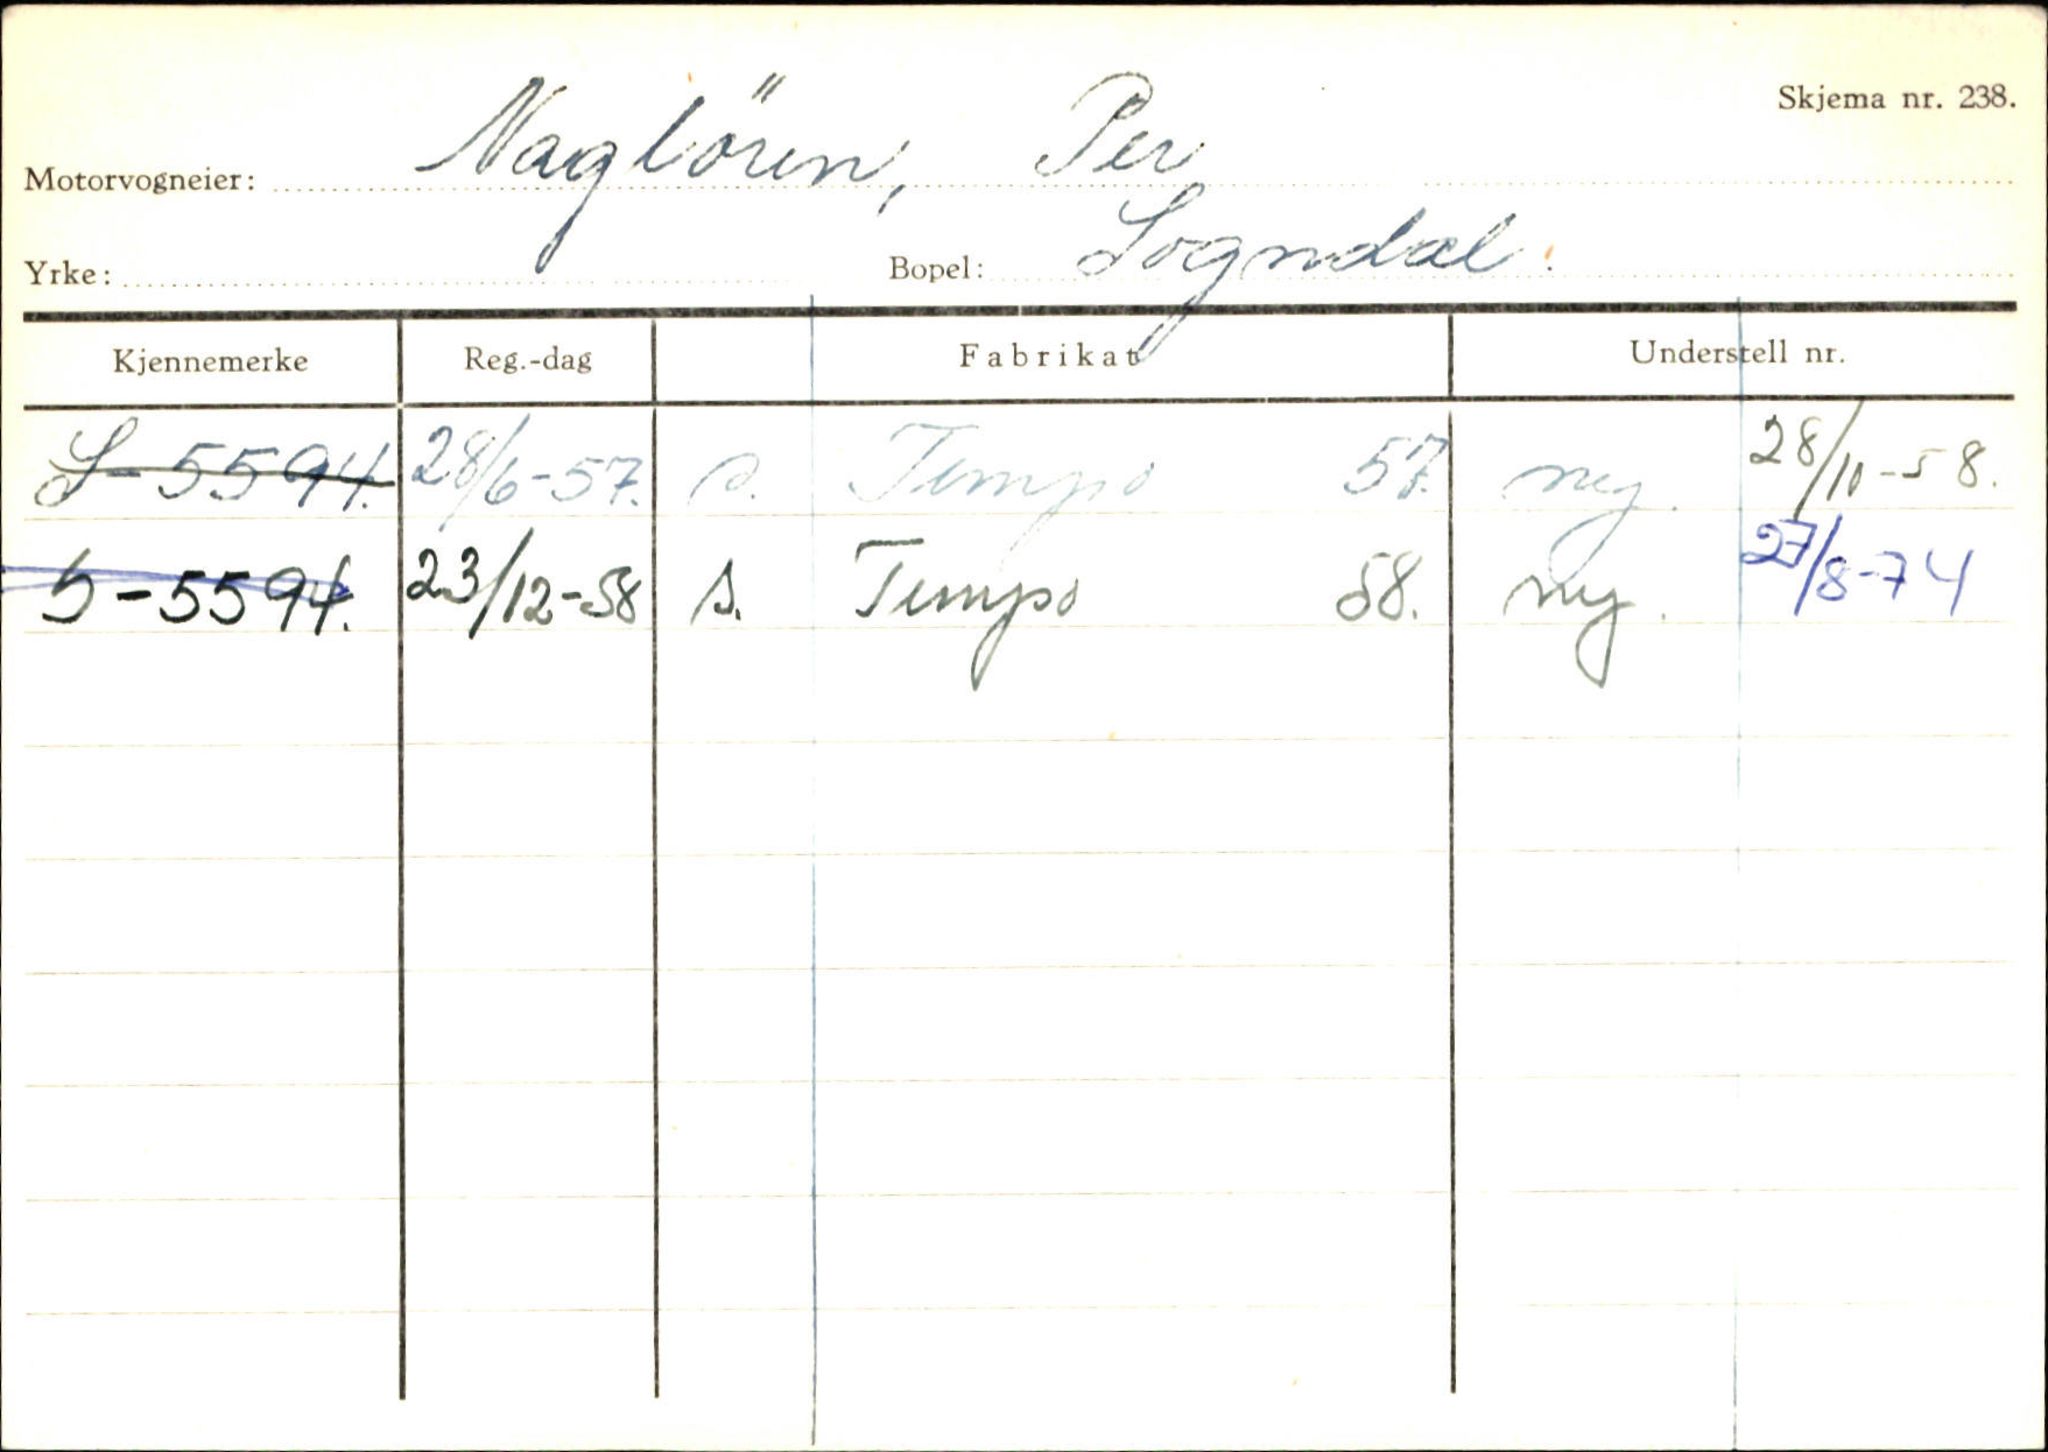 Skjema nr. 238.
Motorvogneier: Naglören, Per
Yrke: Bopel: Sogndal.
Kjennemerke Reg.-dag Fabrikat Understell nr.
S-5594. 28/6-57. s. Tempo 57. ny. 28/10-58.
S-5594. 23/12-58 s. Tempo 58. ny. 27/8-74